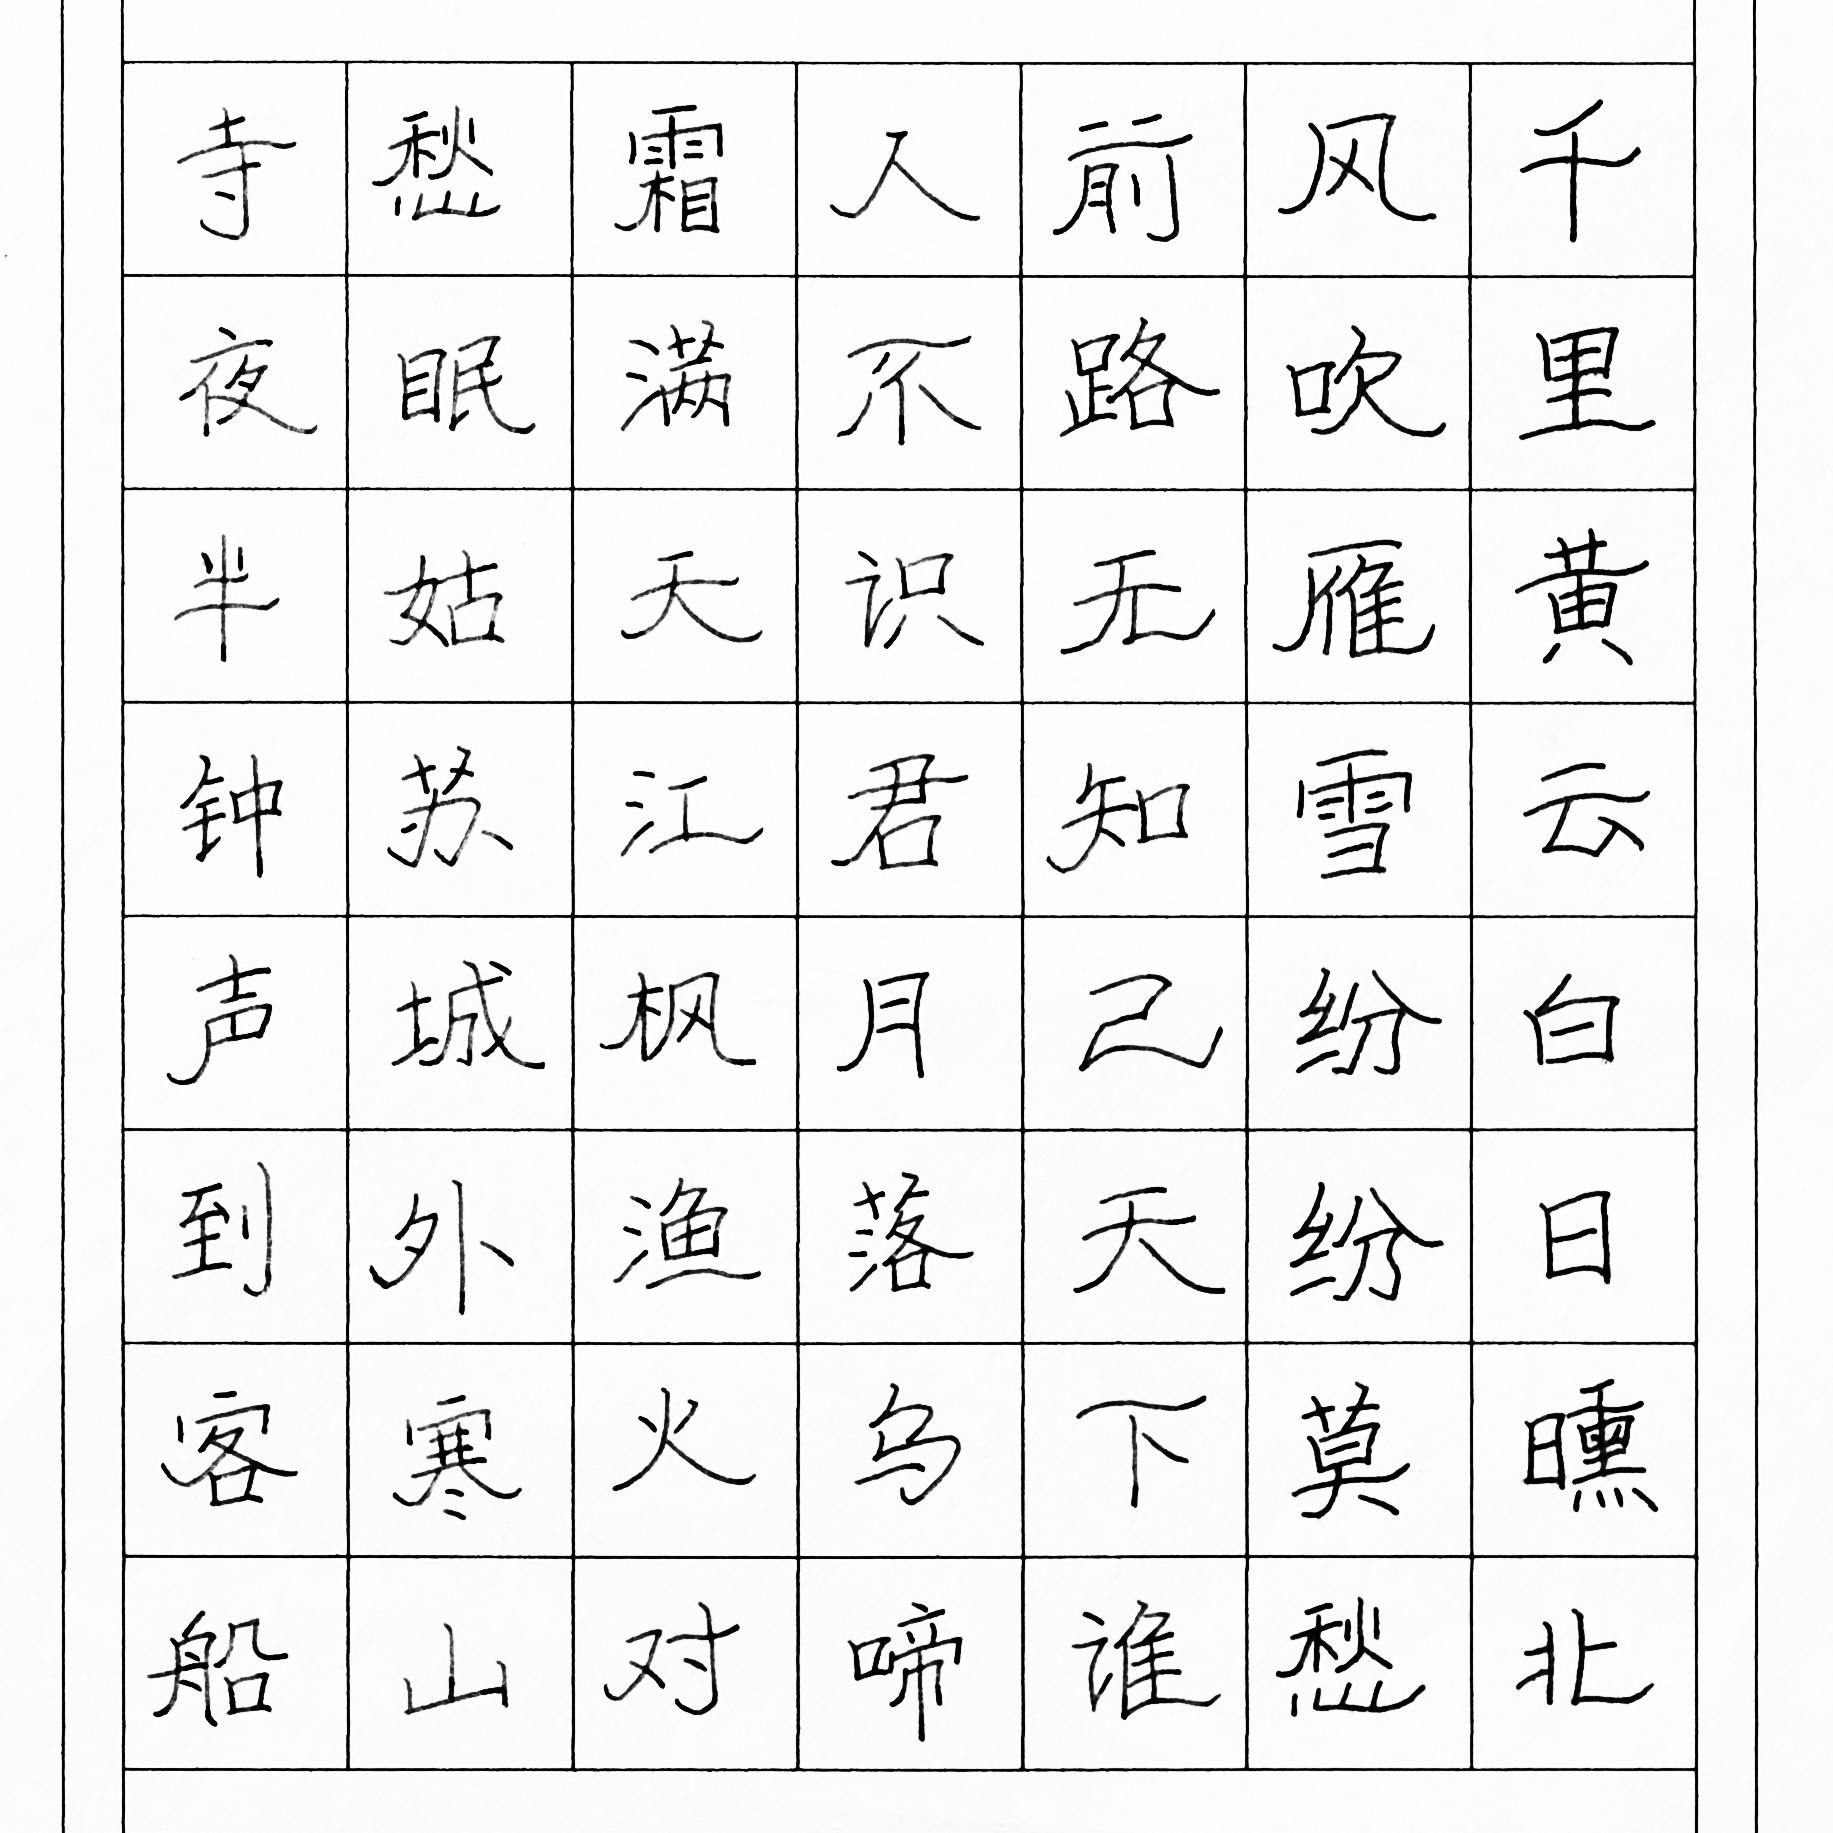 千里黄云白日曛北
风吹雁雪纷纷莫愁
前路无知己天下谁
人不识君月落乌啼
霜满天江枫渔火对
愁眠姑苏城外寒山
寺夜半钟声到客船